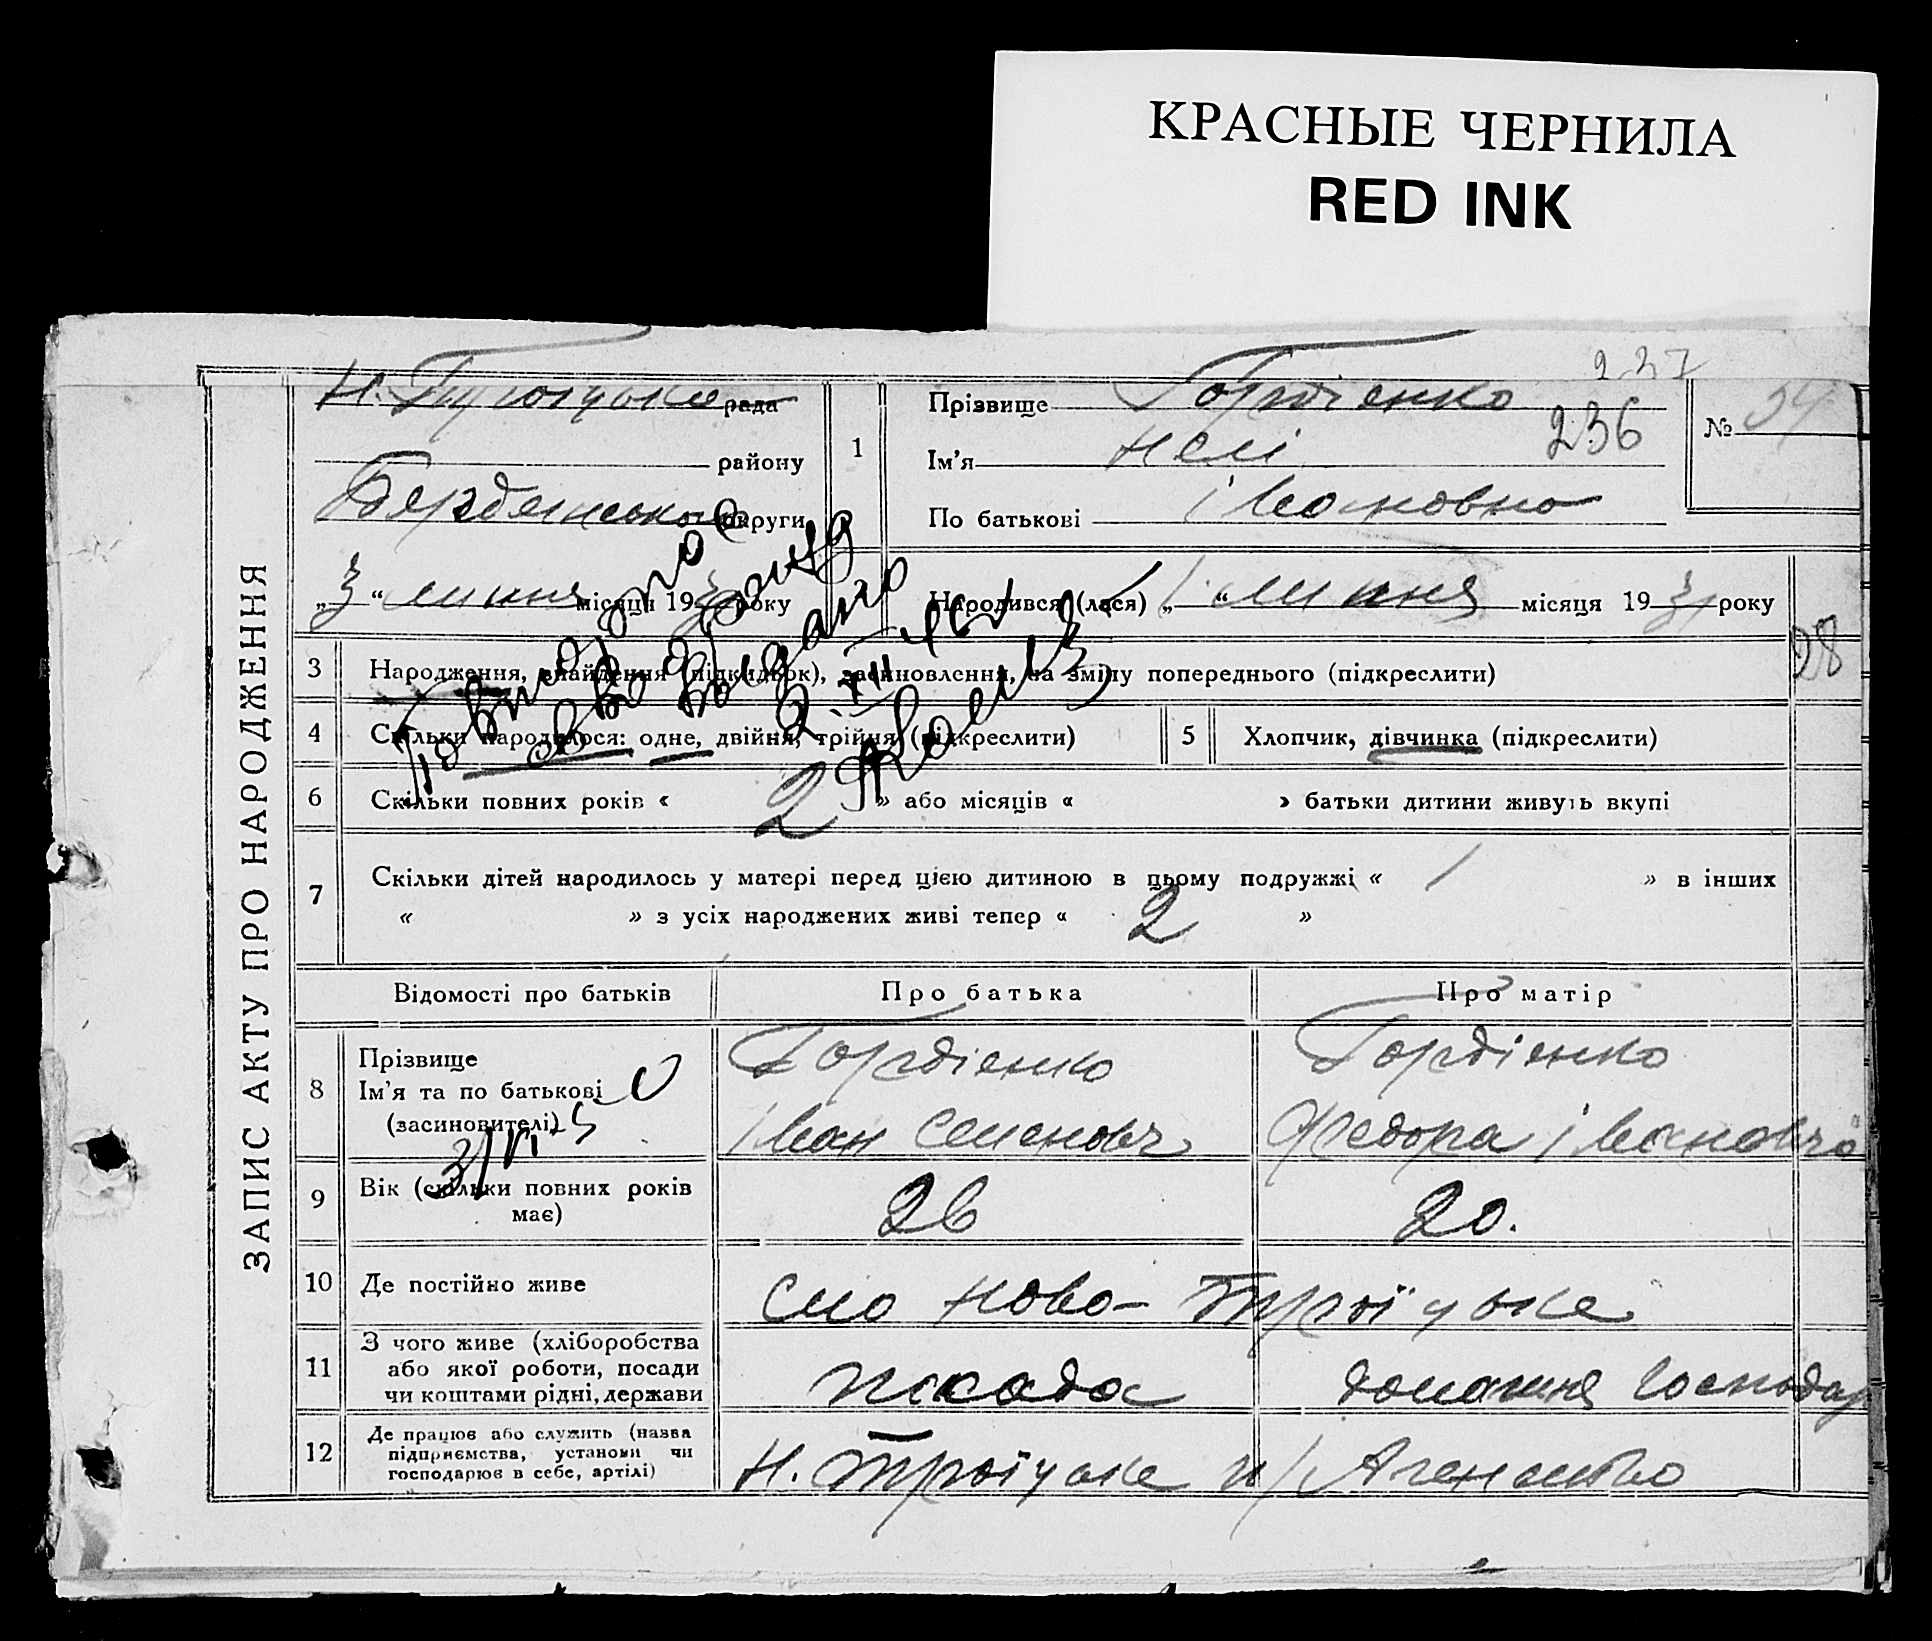 КРАСНЫЕ ЧЕРНИЛА
RED INK
237
ЗАПИС АКТУ ПРО НАРОДЖЕННЯ
рада
району
округи
„3“ липня місяця 193 року
1
Прізвище Гордієнко
236
Ім'я Нелі
По батькові Івановно
№ 34
Народився (лася) „1“ липня місяця 193 року
28
3 Народження, знайдення (підкидьок), засиновлення, на зміну попереднього (підкреслити)
4 Скільки народилося: одне, двійня, трійня (підкреслити)
5 Хлопчик, дівчинка (підкреслити)
Повторно
св во
Выдано
6 Скільки повних років « 2 » або місяців « » батьки дитини живуть вкупі
7 Скільки дітей народилось у матері перед цією дитиною в цьому подружжі « 1 » в інших
« » з усіх народжених живі тепер « 2 »
Відомості про батьків Про батька Про матір
8 Прізвище
Ім'я та по батькові
(засиновителі)
Гордієнко
Іван Семенович
Гордієнко
Федора Івановна
9 Вік (скільки повних років
має)
26
20.
10 Де постійно живе
село Ново-Троїцьке
11 З чого живе (хліборобства
або якої роботи, посади
чи коштами рідні, держави
посада
домашня господар
12 Де працює або служить (назва
підприємства, установи чи
господарює в себе, артілі)
Н. Троїцьке п/Агенство